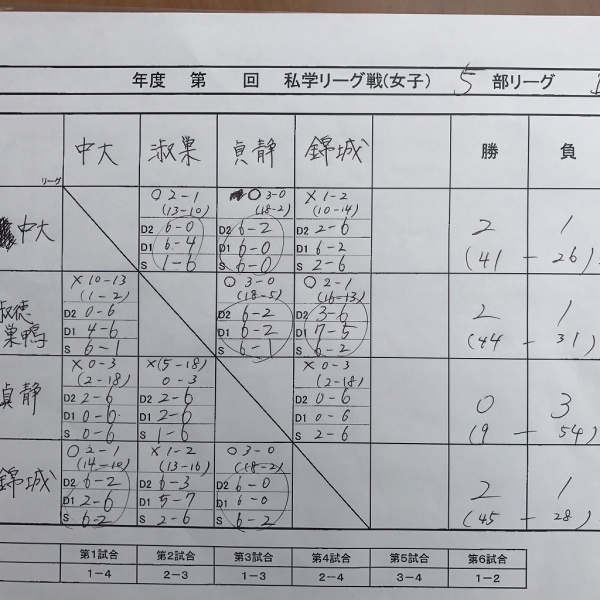 年度 第 回 私学リーグ戦(女子) 5 部リーグ
リーグ 中大 淑巣 貞静 錦城 勝 負
中大
○2-1 ○3-0 ×1-2
(13-10) (18-2) (10-14)
D2 6-0 D2 6-2 D2 2-6
D1 6-4 D1 6-0 D1 6-2
S 1-6 S 6-0 S 2-6
2 1
(41 - 26)
淑徳
巣鴨
×10-13 ○3-0 ○2-1
(1-2) (18-5) (16-13)
D2 0-6 D2 6-2 D2 3-6
D1 4-6 D1 6-2 D1 7-5
S 6-1 S 6-1 S 6-2
2 1
(44 - 31)
貞静
×0-3 ×(5-18) ×0-3
(2-18) 0-3 (2-18)
D2 2-6 D2 2-6 D2 0-6
D1 0-6 D1 2-6 D1 0-6
S 0-6 S 1-6 S 2-6
0 3
(9 - 54)
錦城
○2-1 ×1-2 ○3-0
(14-10) (13-16) (18-2)
D2 6-2 D2 6-3 D2 6-0
D1 2-6 D1 5-7 D1 6-0
S 6-2 S 2-6 S 6-2
2 1
(45 - 28)
第1試合 第2試合 第3試合 第4試合 第5試合 第6試合
1-4 2-3 1-3 2-4 3-4 1-2